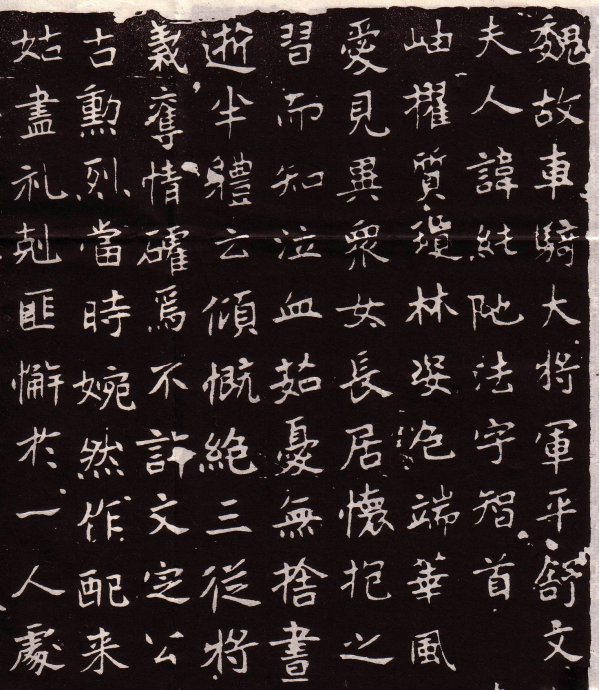 魏故車騎大将軍平舒文
夫人諱純陁法字智首
岫擢質瓊林姿色端華風
愛見異衆女長居懷抱之
習而知泣血茹憂無捨晝
逝半體云傾慨絶三從将
義奪情確焉不許文定公
古勳烈當時婉然作配来
姑盡礼剋匪懈於一人處